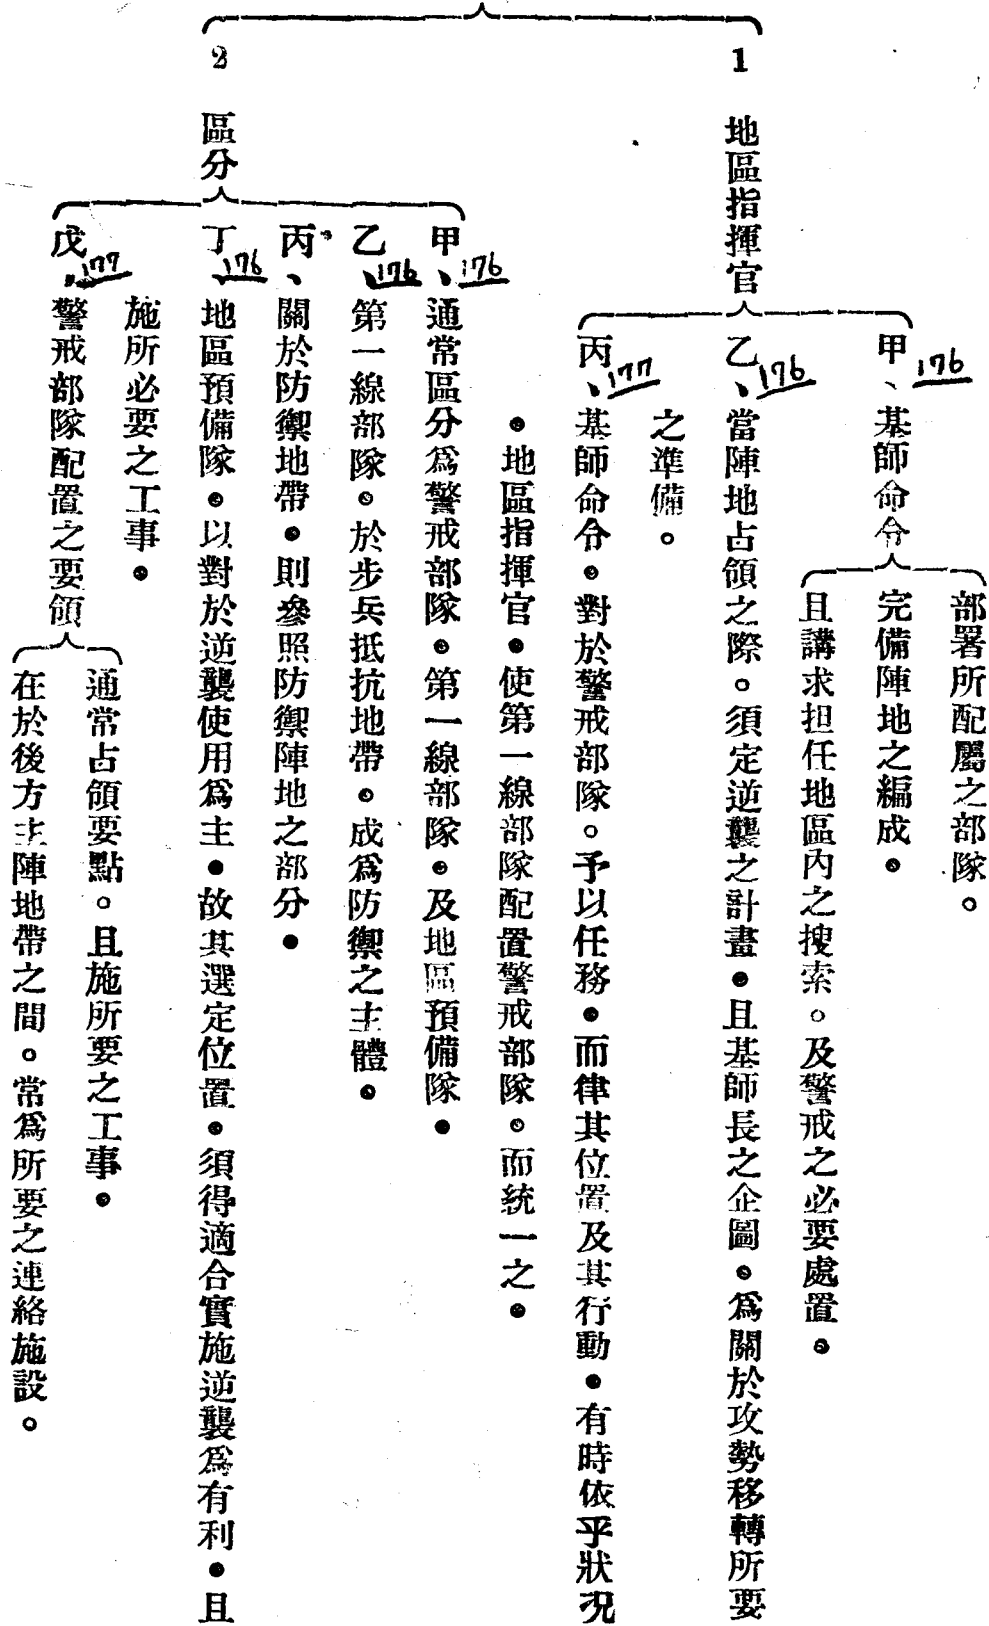 1 地區指揮官
甲、176 基師命令
部署所配屬之部隊。
完備陣地之編成。
且講求担任地區內之搜索。及警戒之必要處置。
乙、176 當陣地占領之際。須定逆襲之計畫。且基師長之企圖。爲關於攻勢移轉所要
之準備。
丙、177 基師命令。對於警戒部隊。予以任務。而律其位置及其行動。有時依乎狀況
。地區指揮官。使第一線部隊配置警戒部隊。而統一之。
2 區分
甲、176 通常區分爲警戒部隊。第一線部隊。及地區預備隊。
乙、176 第一線部隊。於步兵抵抗地帶。成爲防禦之主體。
丙、關於防禦地帶。則參照防禦陣地之部分。
丁、176 地區預備隊。以對於逆襲使用爲主。故其選定位置。須得適合實施逆襲爲有利。且
施所必要之工事。
戊、177 警戒部隊配置之要領
通常占領要點。且施所要之工事。
在於後方主陣地帶之間。常爲所要之連絡施設。